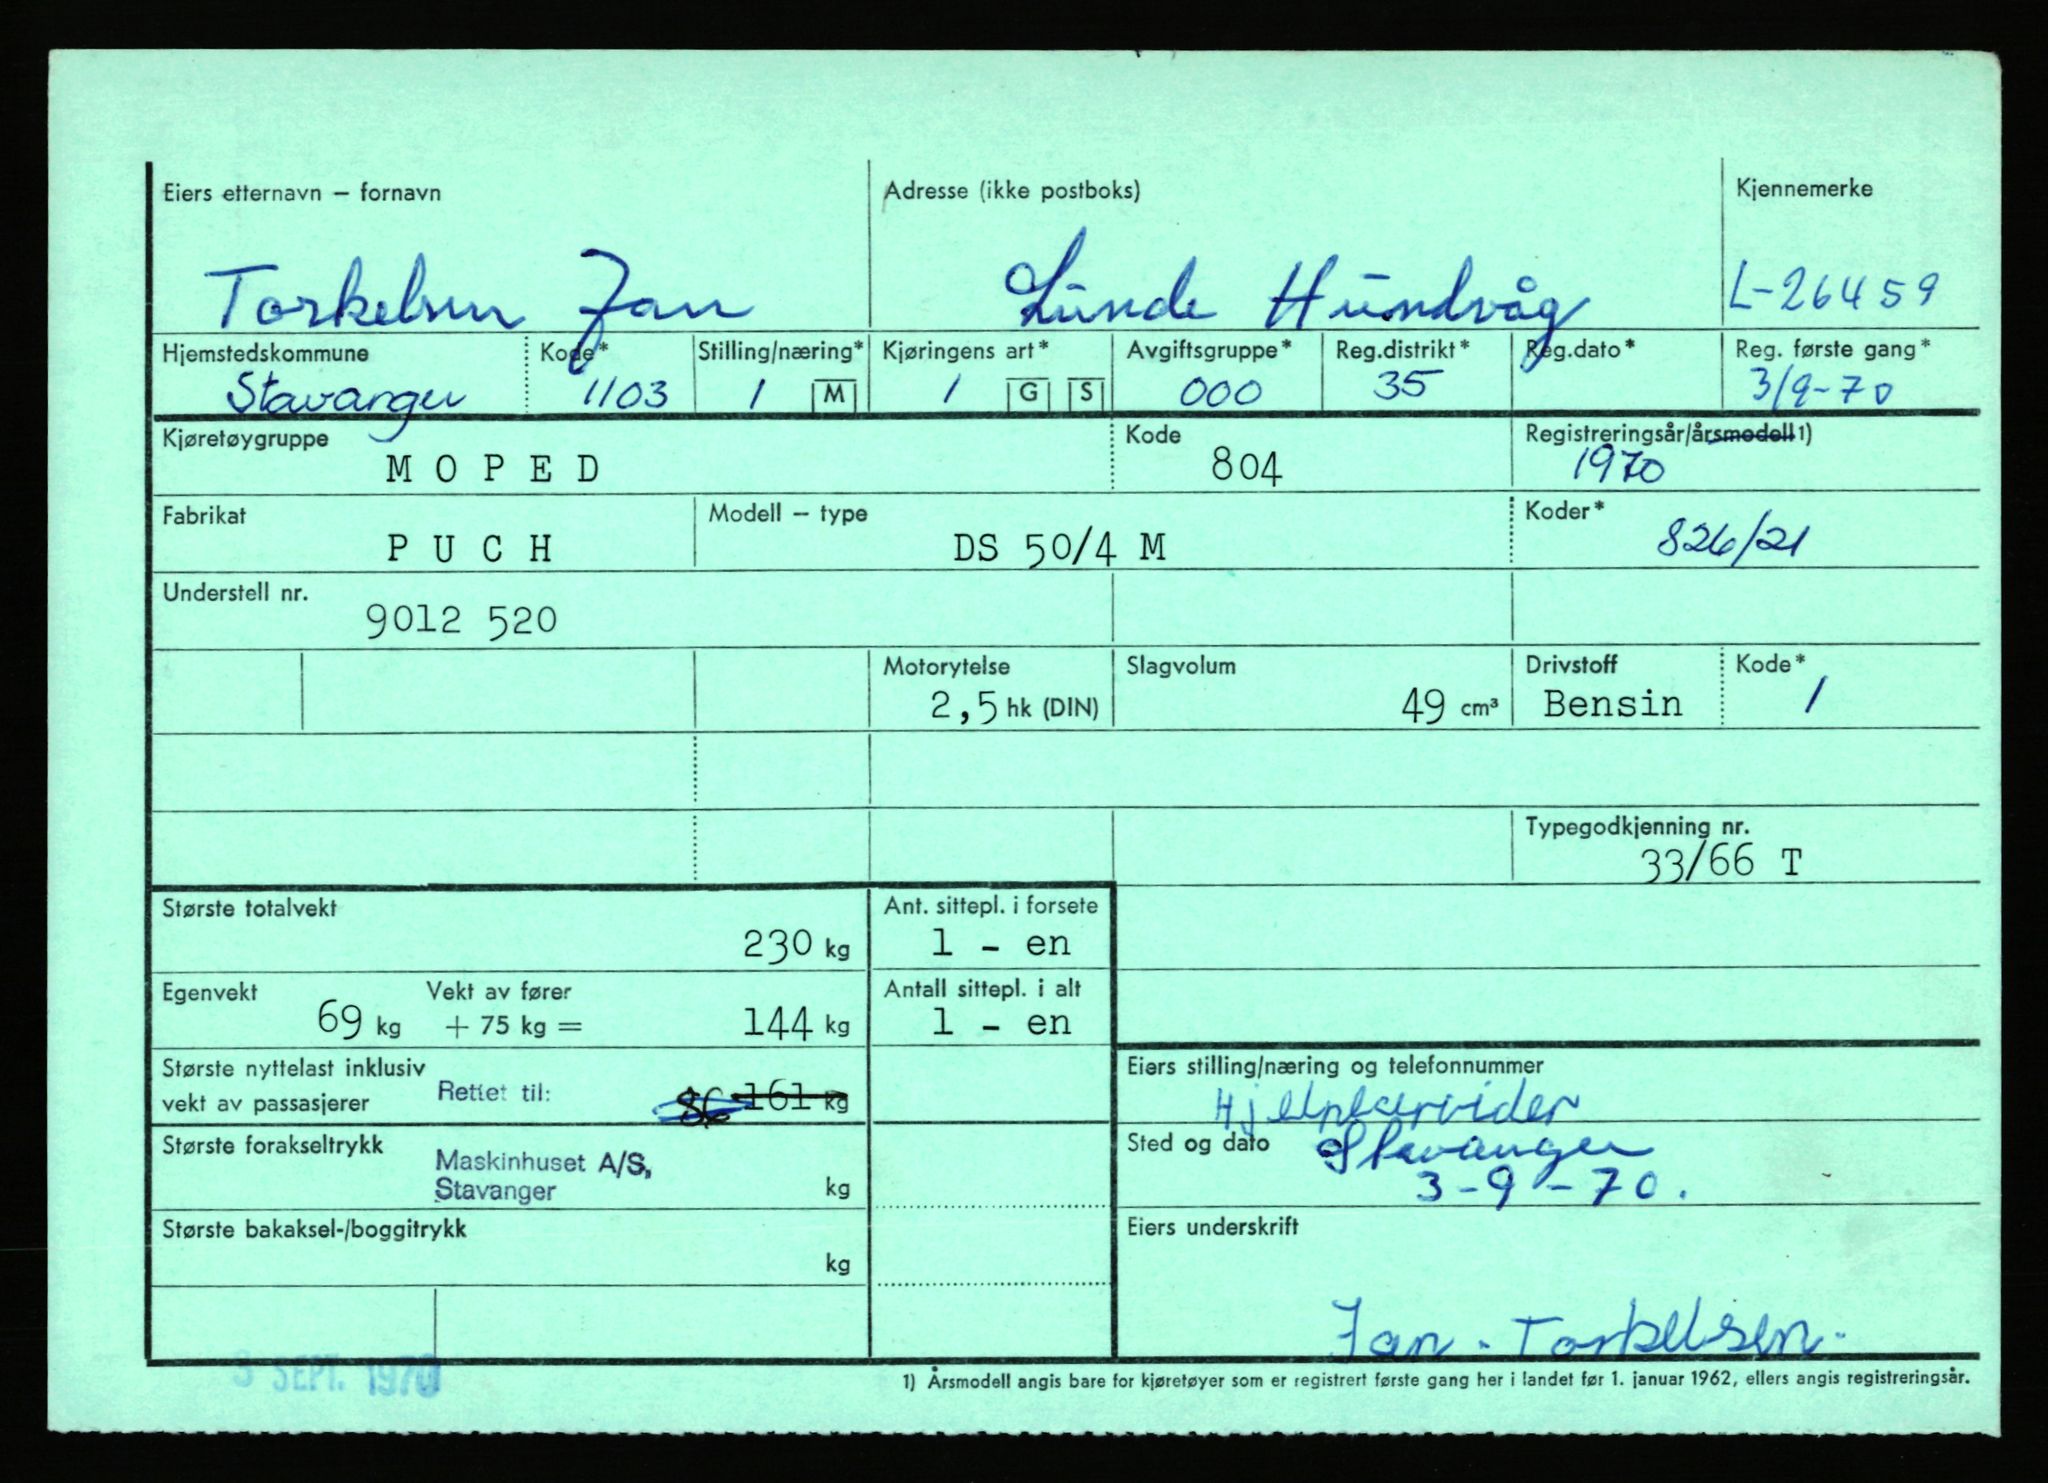 Eiers etternavn – fornavn Adresse (ikke postboks) Kjennemerke
Torkelsen Jan Lunde Hundvåg L-26459
Hjemstedskommune Kode* Stilling/næring* Kjøringens art* Avgiftsgruppe* Reg.distrikt* Reg.dato* Reg. første gang*
Stavanger 1103 1 M 1 G S 000 35 3/9-70
Kjøretøygruppe Kode Registreringsår/årsmodell 1)
MOPED 804 1970
Fabrikat Modell – type Koder*
PUCH DS 50/4 M 826/21
Understell nr.
9012 520
Motorytelse Slagvolum Drivstoff Kode*
2,5 hk (DIN) 49 cm³ Bensin 1
Typegodkjenning nr.
33/66 T
Største totalvekt Ant. sittepl. i forsete
230 kg 1 - en
Egenvekt Vekt av fører Antall sittepl. i alt
69 kg + 75 kg = 144 kg 1 - en
Største nyttelast inklusiv Eiers stilling/næring og telefonnummer
vekt av passasjerer Rettet til: 86 161 kg
Største forakseltrykk Sted og dato Stavanger
Maskinhuset A/S, 3-9-70.
Stavanger kg
Største bakaksel-/boggitrykk Eiers underskrift
kg
Jan. Torkelsen.
3 SEPT. 1970
1) Årsmodell angis bare for kjøretøyer som er registrert første gang her i landet før 1. januar 1962, ellers angis registreringsår.